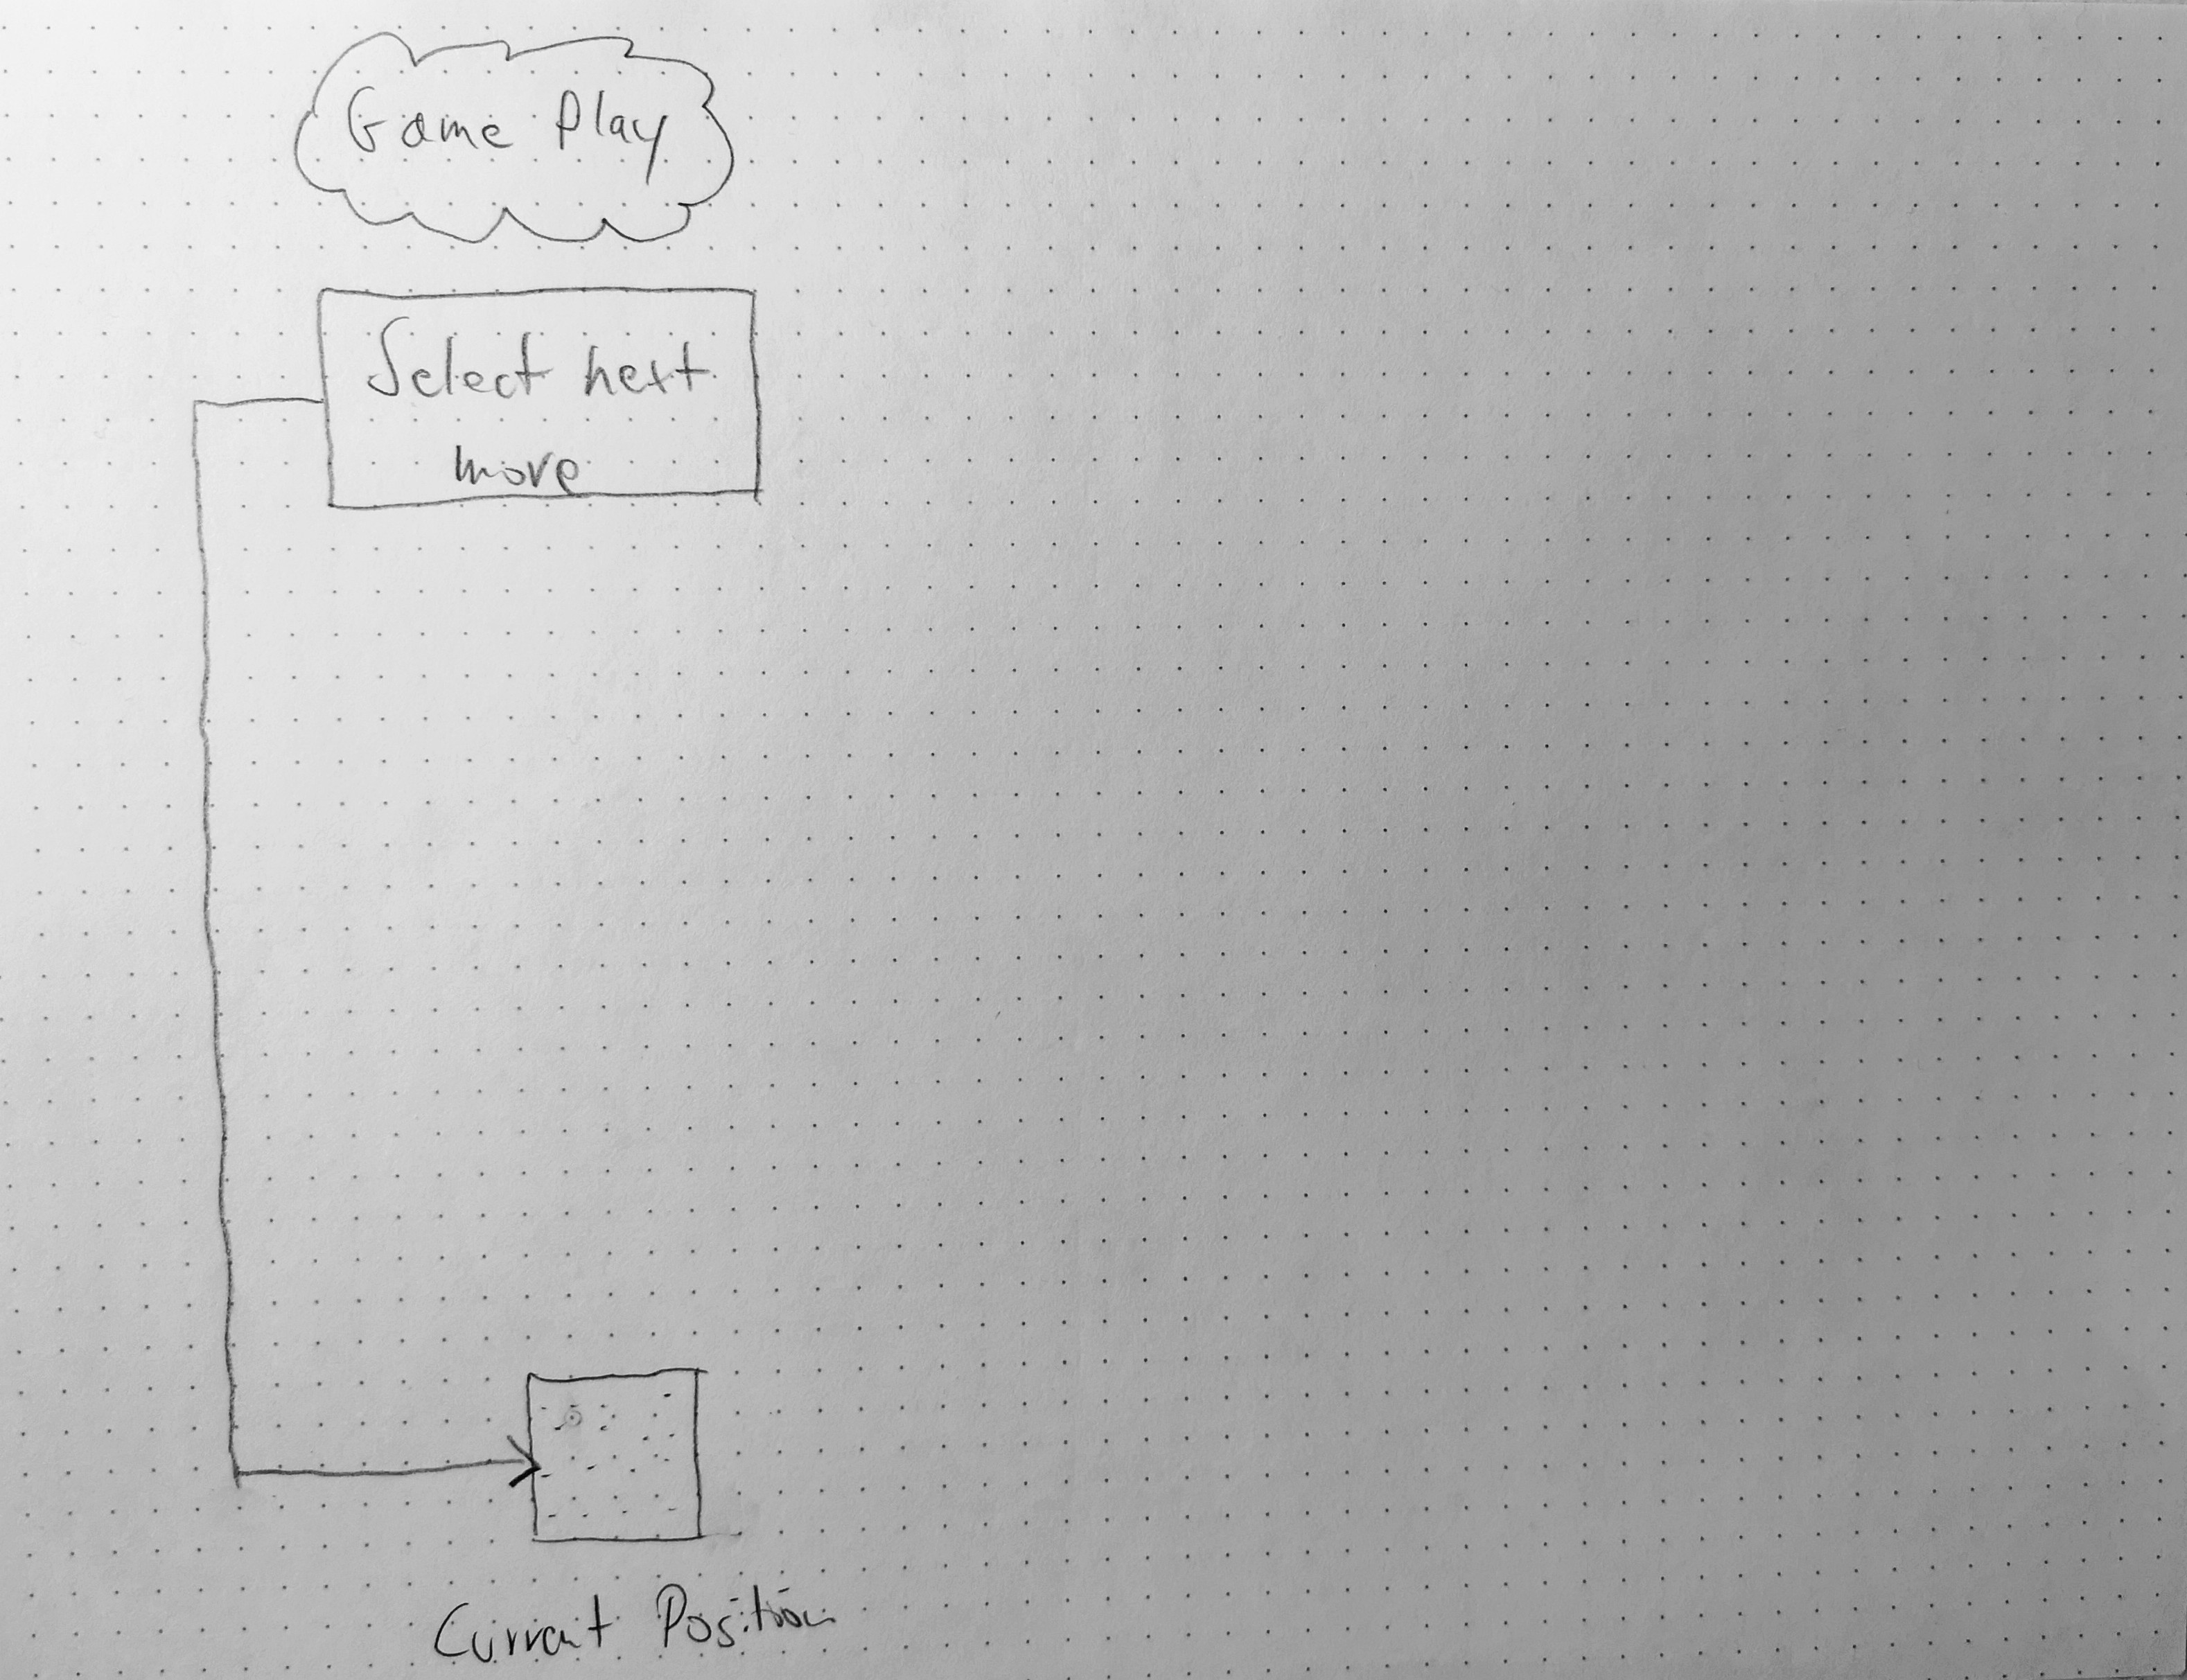 Game Play
Select next
move
Current Position